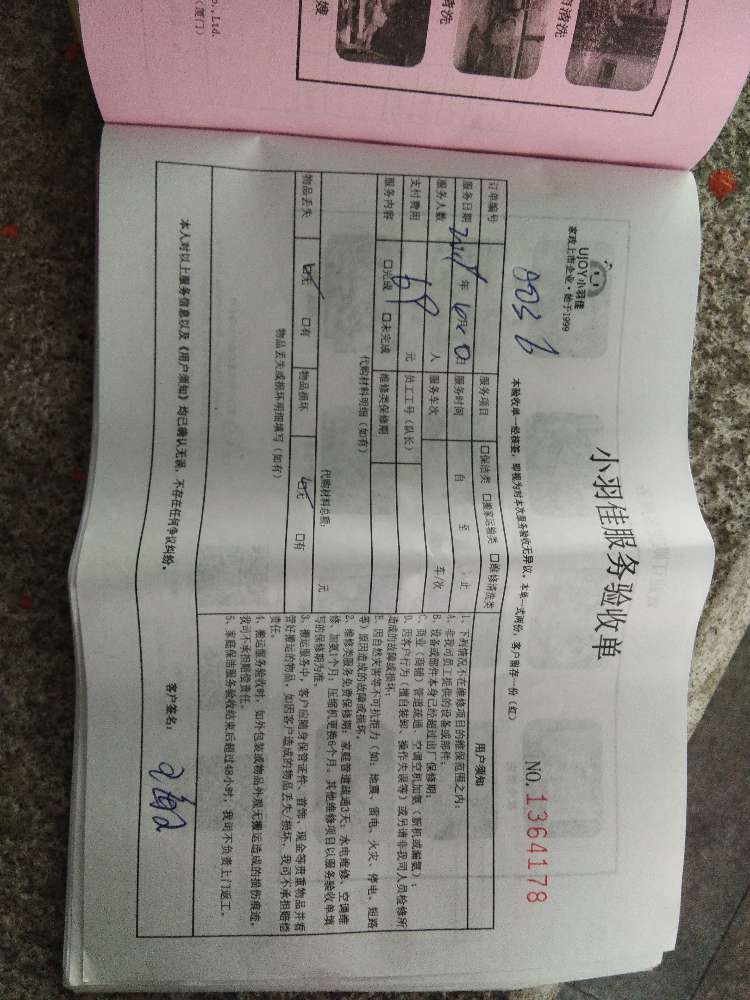 o., Ltd.
(厦门)
嫂
清洗
清洗
UJOY小羽佳
家政上市企业·始于1999
小羽佳服务验收单
本验收单一经核签，即视为对本次服务验收无异议，本单一式两份，客户留存一份（红）
NO.1364178
订单编号
服务项目 □保洁类 □搬家运输类 □维修清洗类
服务日期 年 月 日 服务时间 自 至 止
服务人数 人 服务车次 车/次
支付费用 69 元 员工工号（队长）
服务内容 □完成 □未完成 维修类保修期
代购材料明细（如有）
代购材料总额： 元
物品丢失 □无 □有 物品损坏 □无 □有
物品丢失或损坏明细填写（如有）
用户须知
1、下列情况不在维修项目的维保范围之内：
A、非我司员工提供的设备或部件；
B、设备或部件本身已经超过出厂保修期；
C、商业（商铺）管道疏通、空调空机加氨（新机或漏氨）；
D、因客户行为（擅自装卸、操作失误等）或另请非我司人员检修所
造成的故障或损坏；
E、因自然灾害等不可抗拒力（如：地震、雷电、火灾、停电、短路
等）原因造成的故障或损坏。
2、维修类服务免费保修期：家庭管道疏通3天；水电维修、空调维
修、加氨1个月；压缩机更换6个月，其他维修项目以服务验收单填
写的保修期为准。
3、搬运服务中，客户应随身保管证件、首饰、现金等贵重物品并看
管好搬运的物品，如因客户造成的物品丢失/损坏，我司不承担赔偿
责任。
4、搬运服务验收时，如外包装或物品外观无搬运造成的损伤痕迹，
我司不承担赔偿责任。
5、家庭保洁服务验收结束后超过48小时，我司不负责上门返工。
本人对以上服务信息以及《用户须知》均已确认无误，不存在任何争议纠纷。
客户签名：